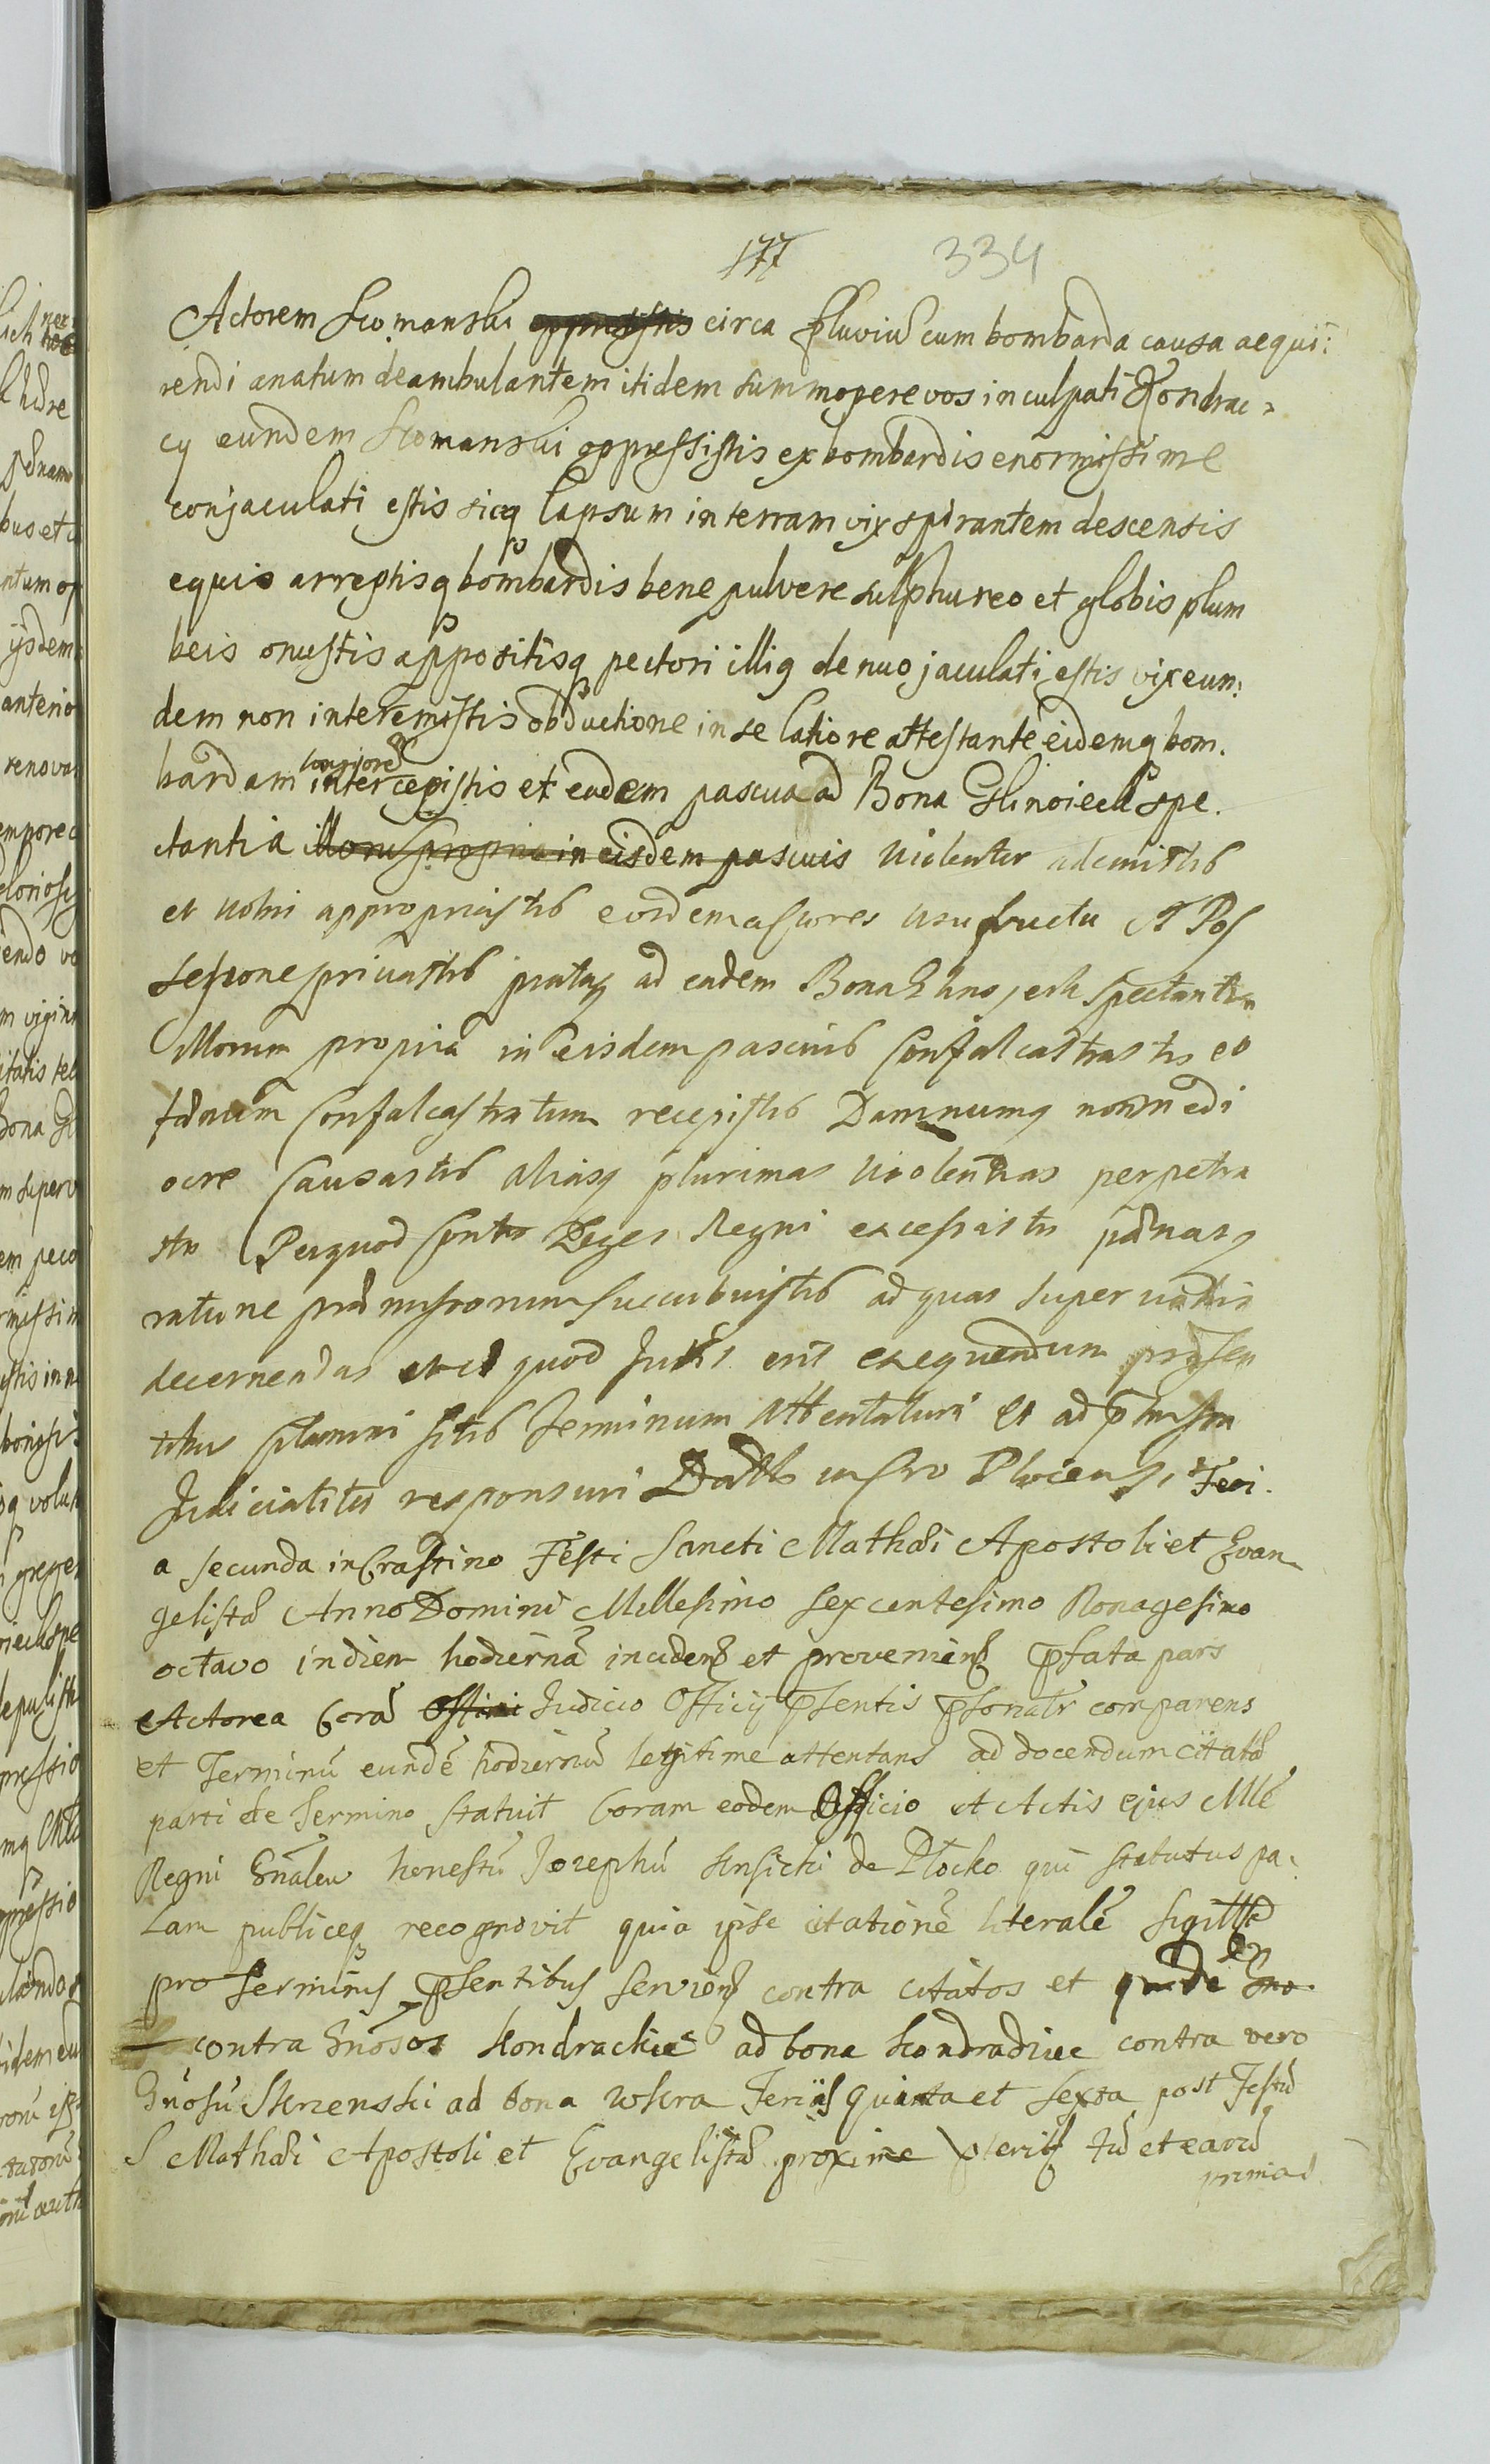 177 334
Actorem Slomanski oppressistis circa fluviũ cum bombarda causa aequi:
rendi anatum deambulantem itidem summopere vos inculpati Kondrac:
cy eundem Slomanski oppressistis ex bombardis enormissime
conjaculati estis sicq lapsum in terram vix spirantem descensis
equis arreptisq bombardis bene pulvere sulphureo et globis plum
beis onustis appositisq pectori illiq denuo jaculati estis vix eun:
dem non interemistis obductione in se latiore attestante eidemq bom.
bardam longiorẽ intercepistis et eadem pascua ad Bona Glinoieck spe.
ctantia illoru propria in eisdem pascuis violenter ademistis
et vobis appropriastis eosdem actores usufructu et Pos
sessione privastis prataq ad eadem Bona Glinojeck spectantia
illorum propria in eisdem pascuis confalcastrastis et
fænum confalcastratum recepistis Damnumq non medi
ocre causastis aliasq plurimas violentias perpetra
stis Perquod contra Leges Regni excessistis pænasq
ratione præmissorum succubuistis ad quas super vobis
decernendas et id quod Juris erit exequendum præsen
tibus citamini sitis Terminum attentaturi et ad præmissa
Judicialiter responsuri Datt in Cro Plocensi Feri.
a secunda in Crastino Festi Sancti Mathæi Apostoli et Evan
gelistæ Anno Domini Millesimo sexcentesimo Nonagesimo
octavo in diem hodiernã inciden et provenien pfata pars
Actorea Corã Offici Judicio Officÿ psentis psonalr comparens
et Terminũ eundẽ hodiernũ legitime attentans ad docendum citatæ
parti de Termino statuit Coram eodem Officio et Actis ejus Mlẽ
Regni Gnãlem honestũ Josephũ Knsicki de Plocko qui statutus pa:
lam publiceq recognovit quia ipse citationẽ literalẽ sigilltã
pro Terminis psentibus servien contra citatos et quidẽ Gn Gno
contra Gnosos Kondrackie ad bona Kondradiec contra vero
Gnosũ Skrzenski ad bona Wkra Feriis quinta et sexta post Festũ
S Mathæi Apostoli et Evangelistæ proxime pterit tũ et earũ
primas